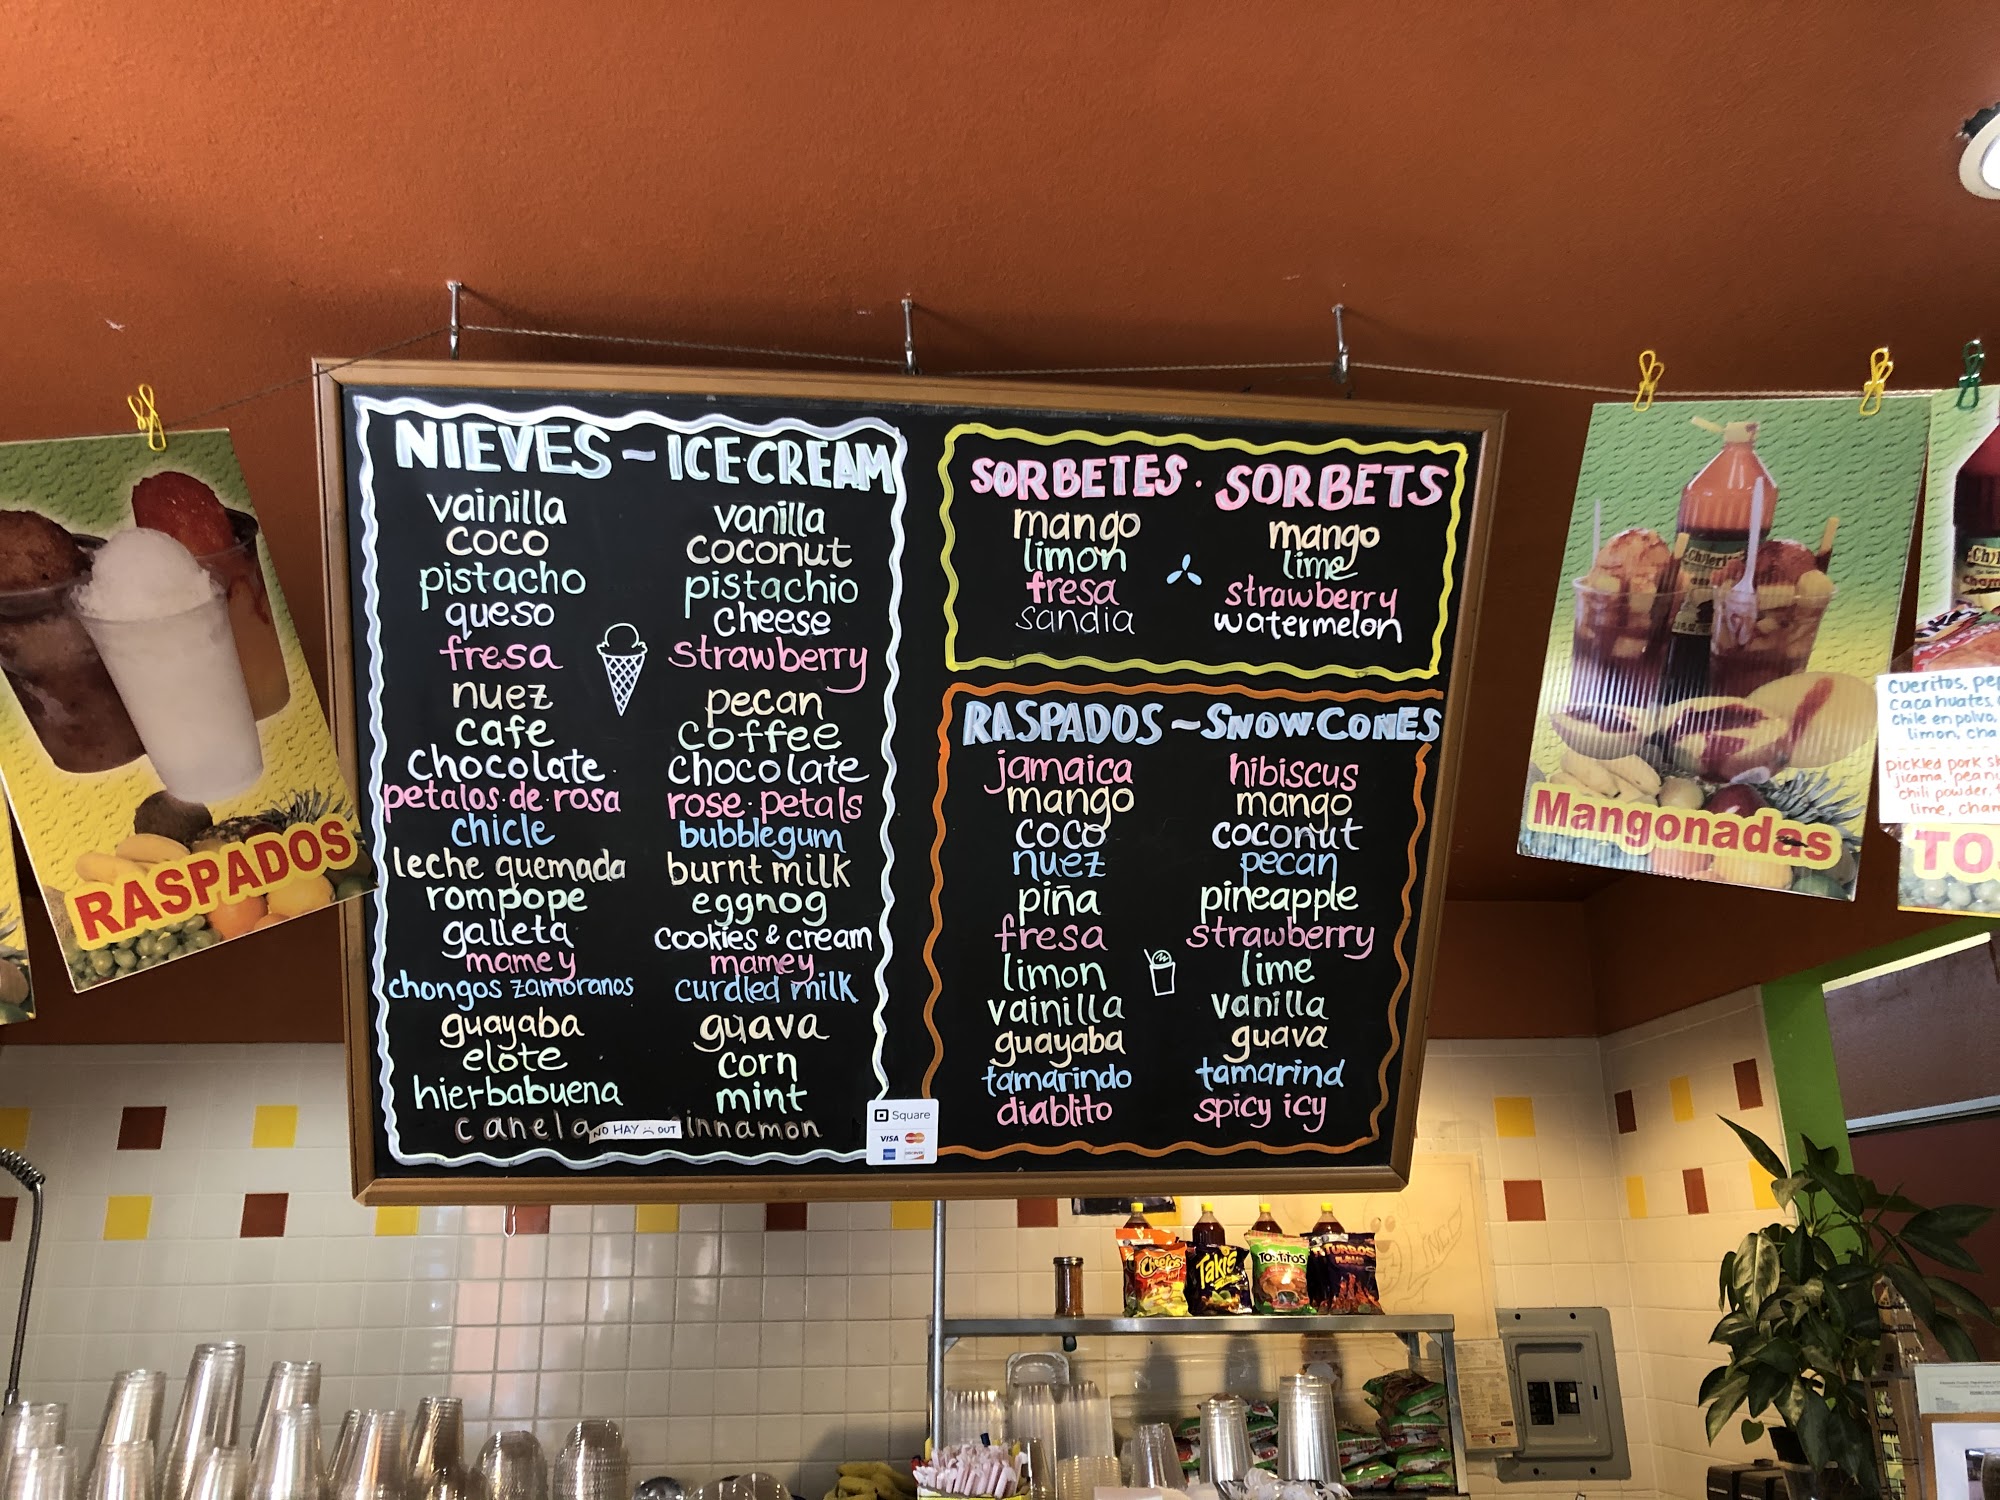 NIEVES ~ ICE·CREAM
vainilla vanilla
coco coconut
pistacho pistachio
queso cheese
fresa strawberry
nuez pecan
cafe coffee
chocolate chocolate
petalos·de·rosa rose·petals
chicle bubblegum
leche quemada burnt milk
rompope eggnog
galleta cookies & cream
mamey mamey
chongos zamoranos curdled milk
guayaba guava
elote corn
hierbabuena mint
canela innamon
NO HAY OUT
Square
VISA
SORBETES · SORBETS
mango mango
limon lime
fresa strawberry
sandia watermelon
RASPADOS ~ SNOW·CONES
jamaica hibiscus
mango mango
coco coconut
nuez pecan
piña pineapple
fresa strawberry
limon lime
vainilla vanilla
guayaba guava
tamarindo tamarind
diablito spicy icy
RASPADOS
Mangonadas
cueritos, pe
cacahuates,
chile en polvo,
limon, cha
pickled pork
jicama, pean
chili powder,
lime, cham
TO
Cheetos
Takis
TOSTITOS